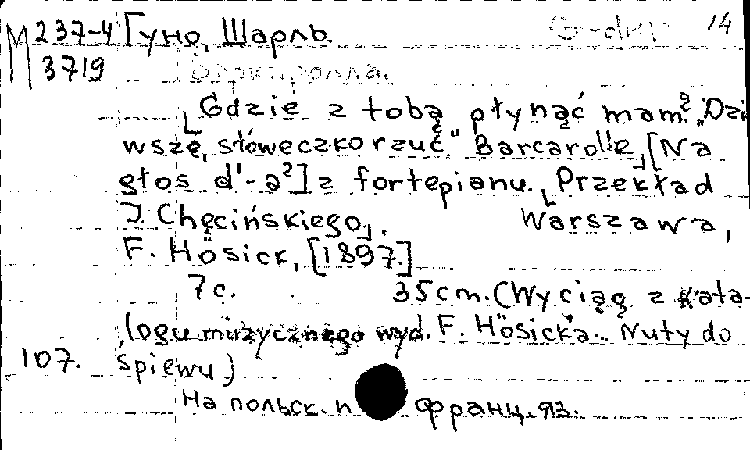 М 237-4 Гуно, Шарль. 14
3719
Баркаролла.
Gdzie z tobą płynąć mam? „Dzi
wszę, słóweczko rzuć" Barcarolle, [Na
głos d'-a²] z fortepianu. Przekład
J. Chęcińskiego. Warszawa,
F. Hösick, [1897.]
7 с. 35 cm. (Wyciąg z kata-
logu muzycznego wyd. F. Hösicka. Nuty do
107. śpiewu)
На польск. и франц. яз.